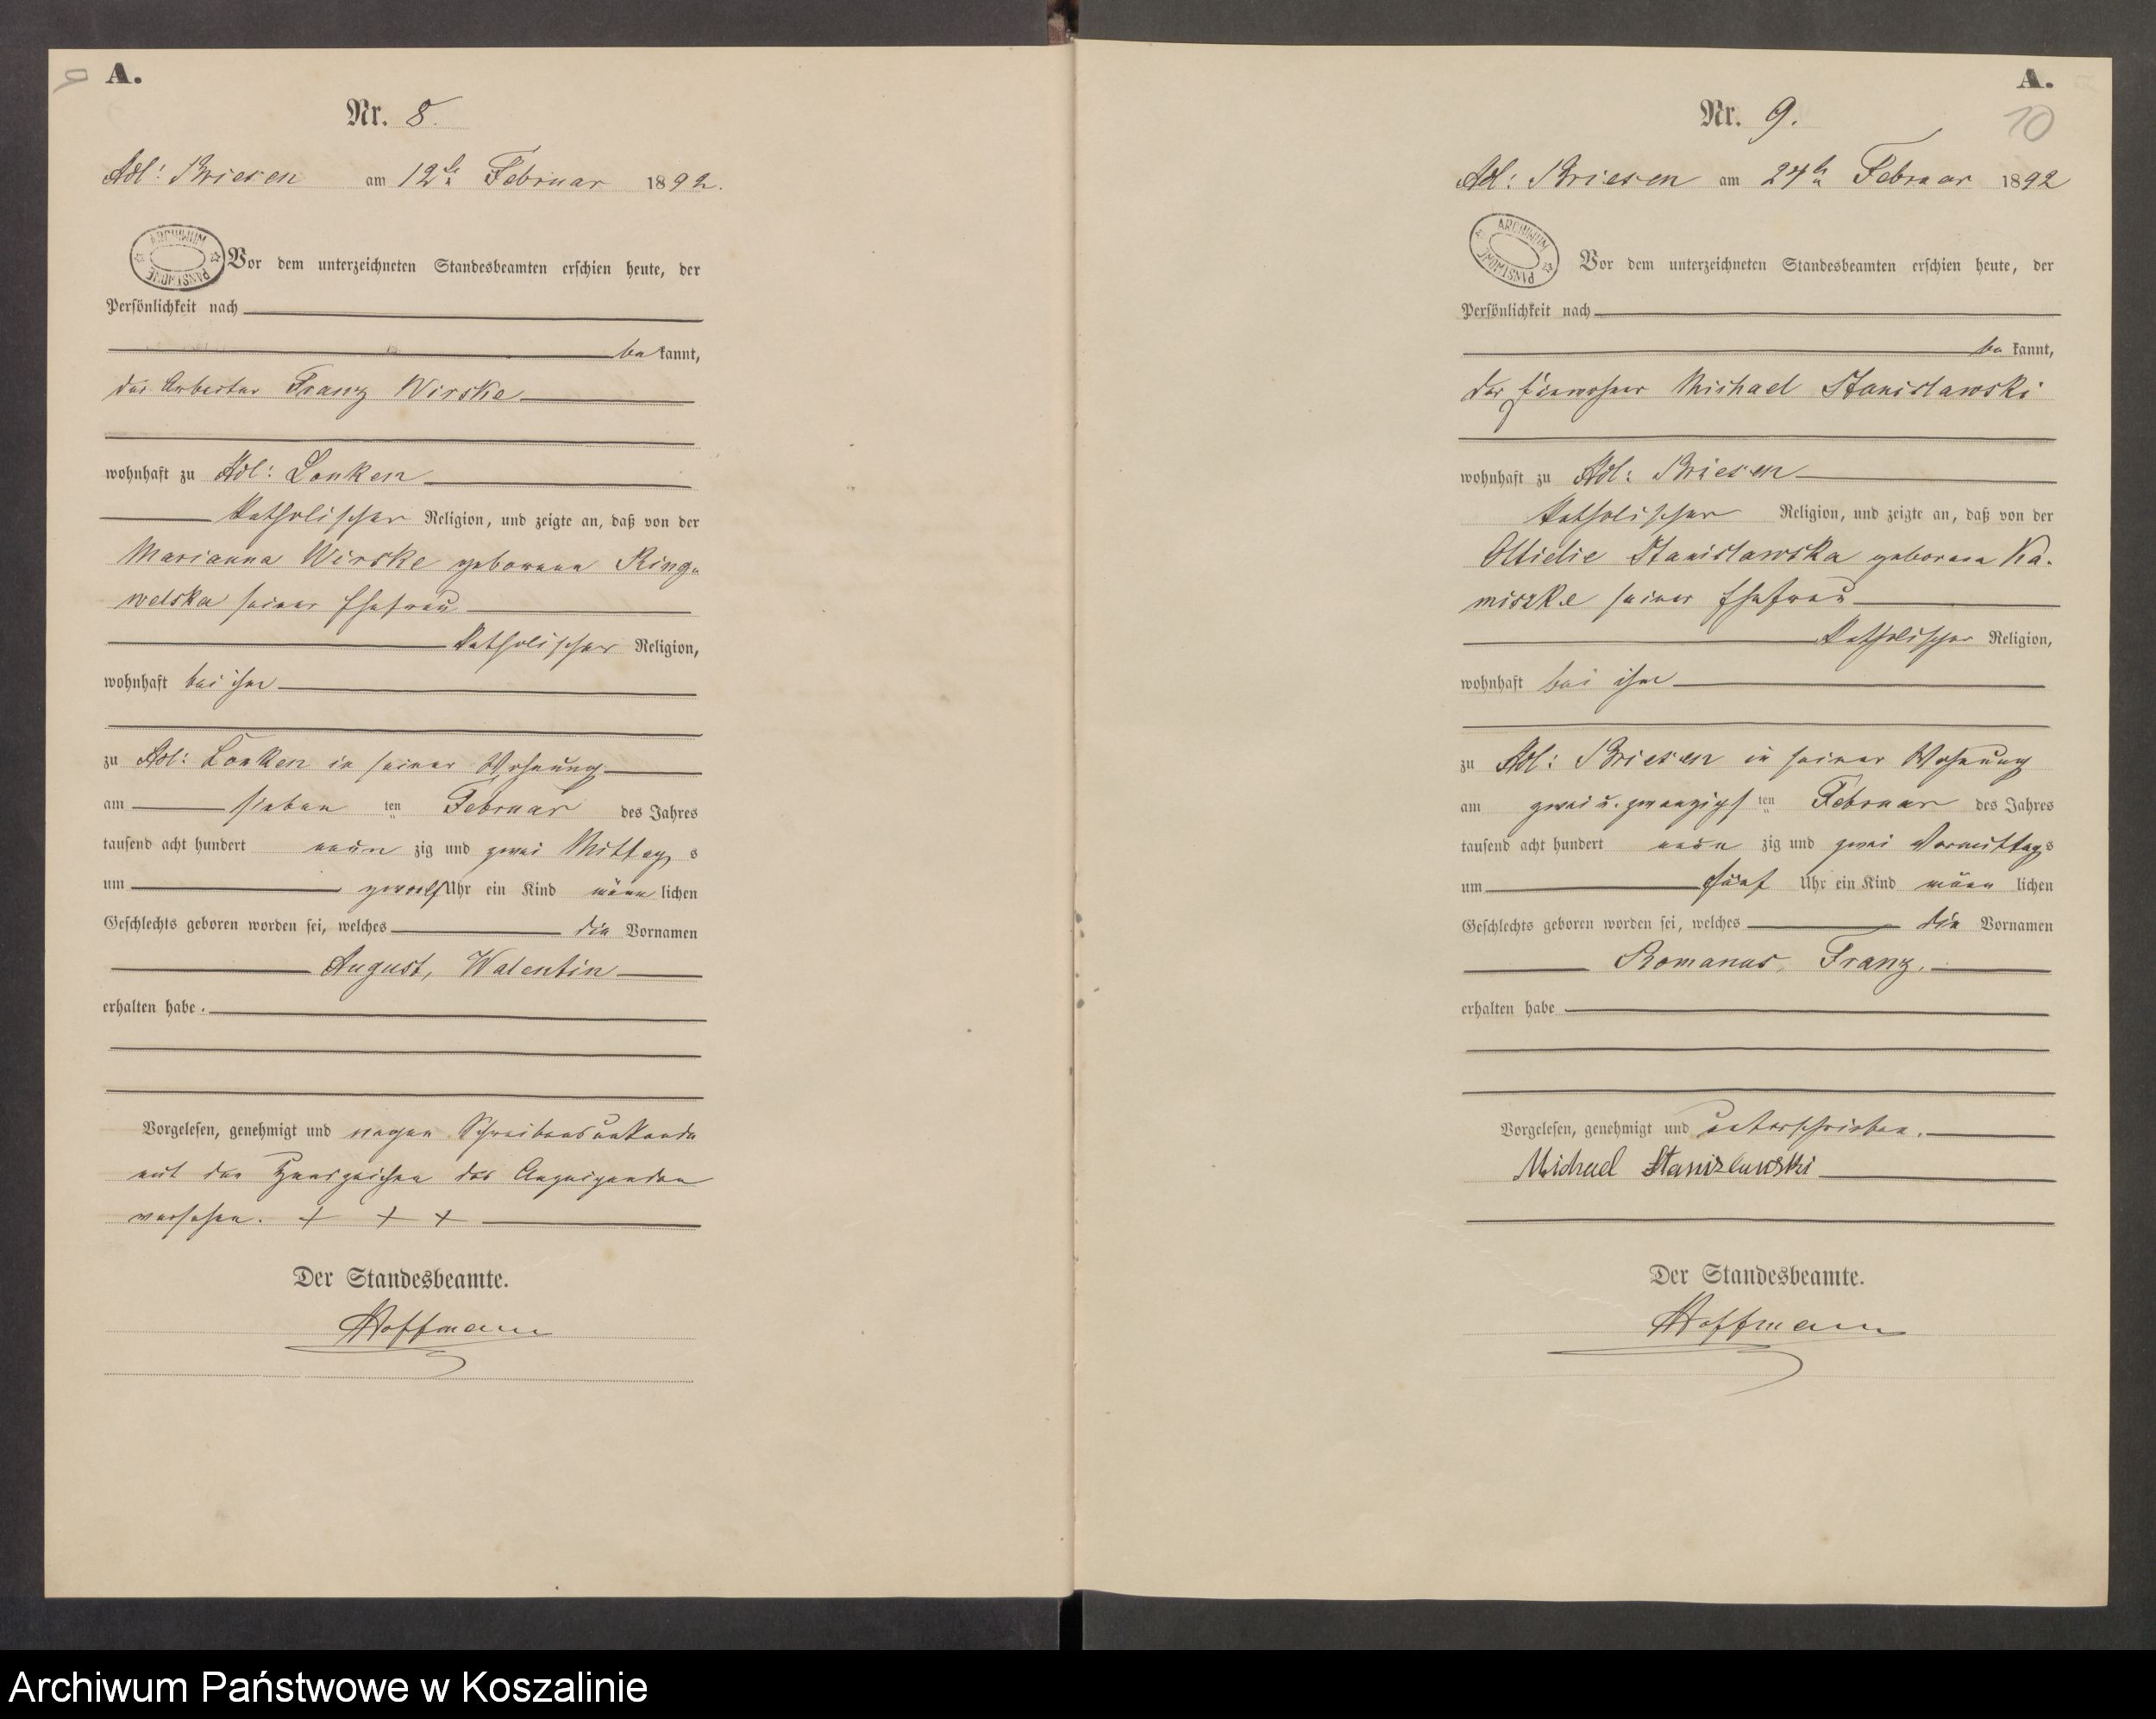 A.
Nr. 8.
Adl: Briesen am 12te Februar 1892.
ARCHIWUM PAŃSTWOWE
Vor dem unterzeichneten Standesbeamten erschien heute, der
Persönlichkeit nach
bekannt,
der Arbeiter Franz Wirske
wohnhaft zu Adl: Lonken
katholischer Religion, und zeigte an, daß von der
Marianna Wirske geborene Ring-
welska seiner Ehefrau
katholischer Religion,
wohnhaft bei ihm
zu Adl: Lonken in seiner Wohnung
am sieben ten Februar des Jahres
tausend acht hundert neun zig und zwei Mittags
um zwoelf Uhr ein Kind männlichen
Geschlechts geboren worden sei, welches die Vornamen
August, Walentin
erhalten habe.
Vorgelesen, genehmigt und wegen Schreibensunkunde
mit den Handzeichen des Anzeigenden
versehen. + + +
Der Standesbeamte.
Hoffmann
A.
10
Nr. 9.
Adl: Briesen am 24te Februar 1892
ARCHIWUM PAŃSTWOWE
Vor dem unterzeichneten Standesbeamten erschien heute, der
Persönlichkeit nach
bekannt,
der Einwohner Michael Stanislawski
wohnhaft zu Adl: Briesen
katholischer Religion, und zeigte an, daß von der
Ottielie Stanislawska geborene Ka-
miszke seiner Ehefrau
katholischer Religion,
wohnhaft bei ihm
zu Adl: Briesen in seiner Wohnung
am zwei u. zwanzigs ten Februar des Jahres
tausend acht hundert neun zig und zwei Vormittags
um fünf Uhr ein Kind männlichen
Geschlechts geboren worden sei, welches die Vornamen
Romanus, Franz.
erhalten habe
Vorgelesen, genehmigt und unterschrieben.
Michael Stanizlawski
Der Standesbeamte.
Hoffmann
Archiwum Państwowe w Koszalinie